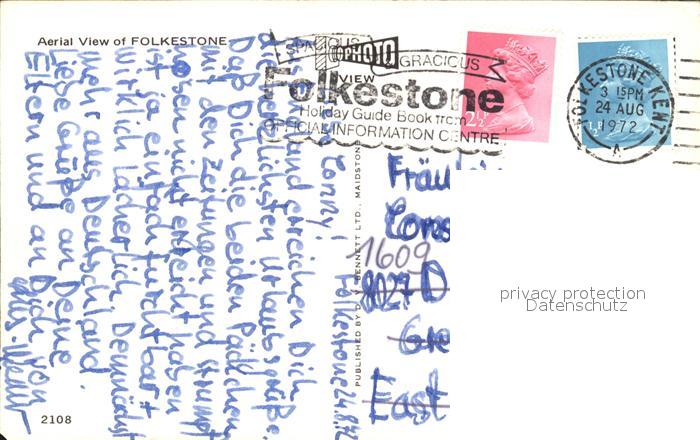 Aerial View of FOLKESTONE
SPACIOUS
GRACIOUS
VIEW
Folkestone
Holiday Guide Book from
OFFICIAL INFORMATION CENTRE
2½P
FOLKESTONE KENT
3 15PM
24 AUG
1972
A
Folkestone 24.8.72
Conny!
und erreichen Dich
die herzlichsten Urlaubsgrüße.
Daß Dich die beiden Päckchen
mit den Zeitungen und Strumpf
hosen nicht erreicht haben
ist ja einfach furchtbar +
wirklich lächerlich. Demnächst
mehr aus Deutschland.
Liebe Grüße an Deine
Eltern und an Dich von
PUBLISHED BY D. V. BENNETT LTD., MAIDSTONE
Fräulein
Cons
1609
8027 D
Gre
East
privacy protection
Datenschutz
2108